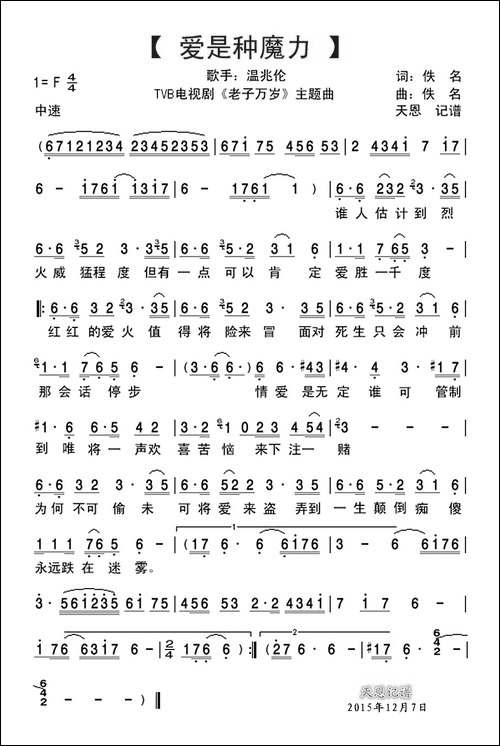 【 爱是种魔力 】
1= F 4/4
歌手：温兆伦
词：佚 名
TVB电视剧《老子万岁》主题曲
曲：佚 名
中速
天恩 记谱
(67121234 23452353 | 671 75 456 53 | 2 4341 7 17 |
6 - 1761 1317 | 6 - 1761 1 ) | 6·6 232 3· 35 |
谁人估计到 烈
6·6 52 3· 35 | 6·6 5·2 31 6 | 1·1 765 3 - |
火威 猛程 度 但有 一点 可以 肯 定 爱胜 一千 度
‖: 6·6 32 3· 35 | 6·6 52 3· 35 | 6·6 5·2 31 6 |
红红 的爱 火 值 得将 险来 冒 面对 死生 只会 冲 前
1·1 765 6 - | (3· 66· ) 6· #43 | #4· 4 3· #17 |
那会 话 停步 情爱 是无 定 谁 可 管制
#1· 6 6·5 42 | 3·3 #1·2 3 23 4 54 | 3 - - |
到 唯 将一 声欢 喜苦 恼 来下 注一 赌
6·6 52 3· 35 | 6·6 52 2· 35 | 6·6 5·2 31 6 |
为何 不可 偷 未 可将 爱来 盗 弄到 一生 颠倒 痴 傻
1 1 1 765 6 - | (17 6· 6 6176 | 3 - - 6176 |
1
永远跌 在 迷 雾。
3· 561235 6151 | 456 53 2·2 4341 | 7 176 6 - |
1 76 6317 6 - | 2/4 - ) :‖ (7 6· 6 6176 | 6 - - #17 | 6· 6 4 2 - |
2
6 4 2 - - - ) ‖
天恩记谱
2015年12月7日